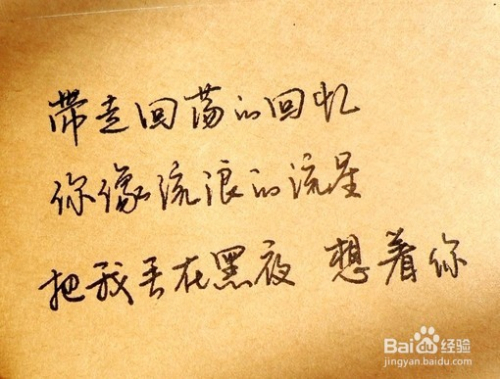 带走回荡的回忆
你像流浪的流星
把我丢在黑夜 想着你
Baidu经验
jingyan.baidu.com